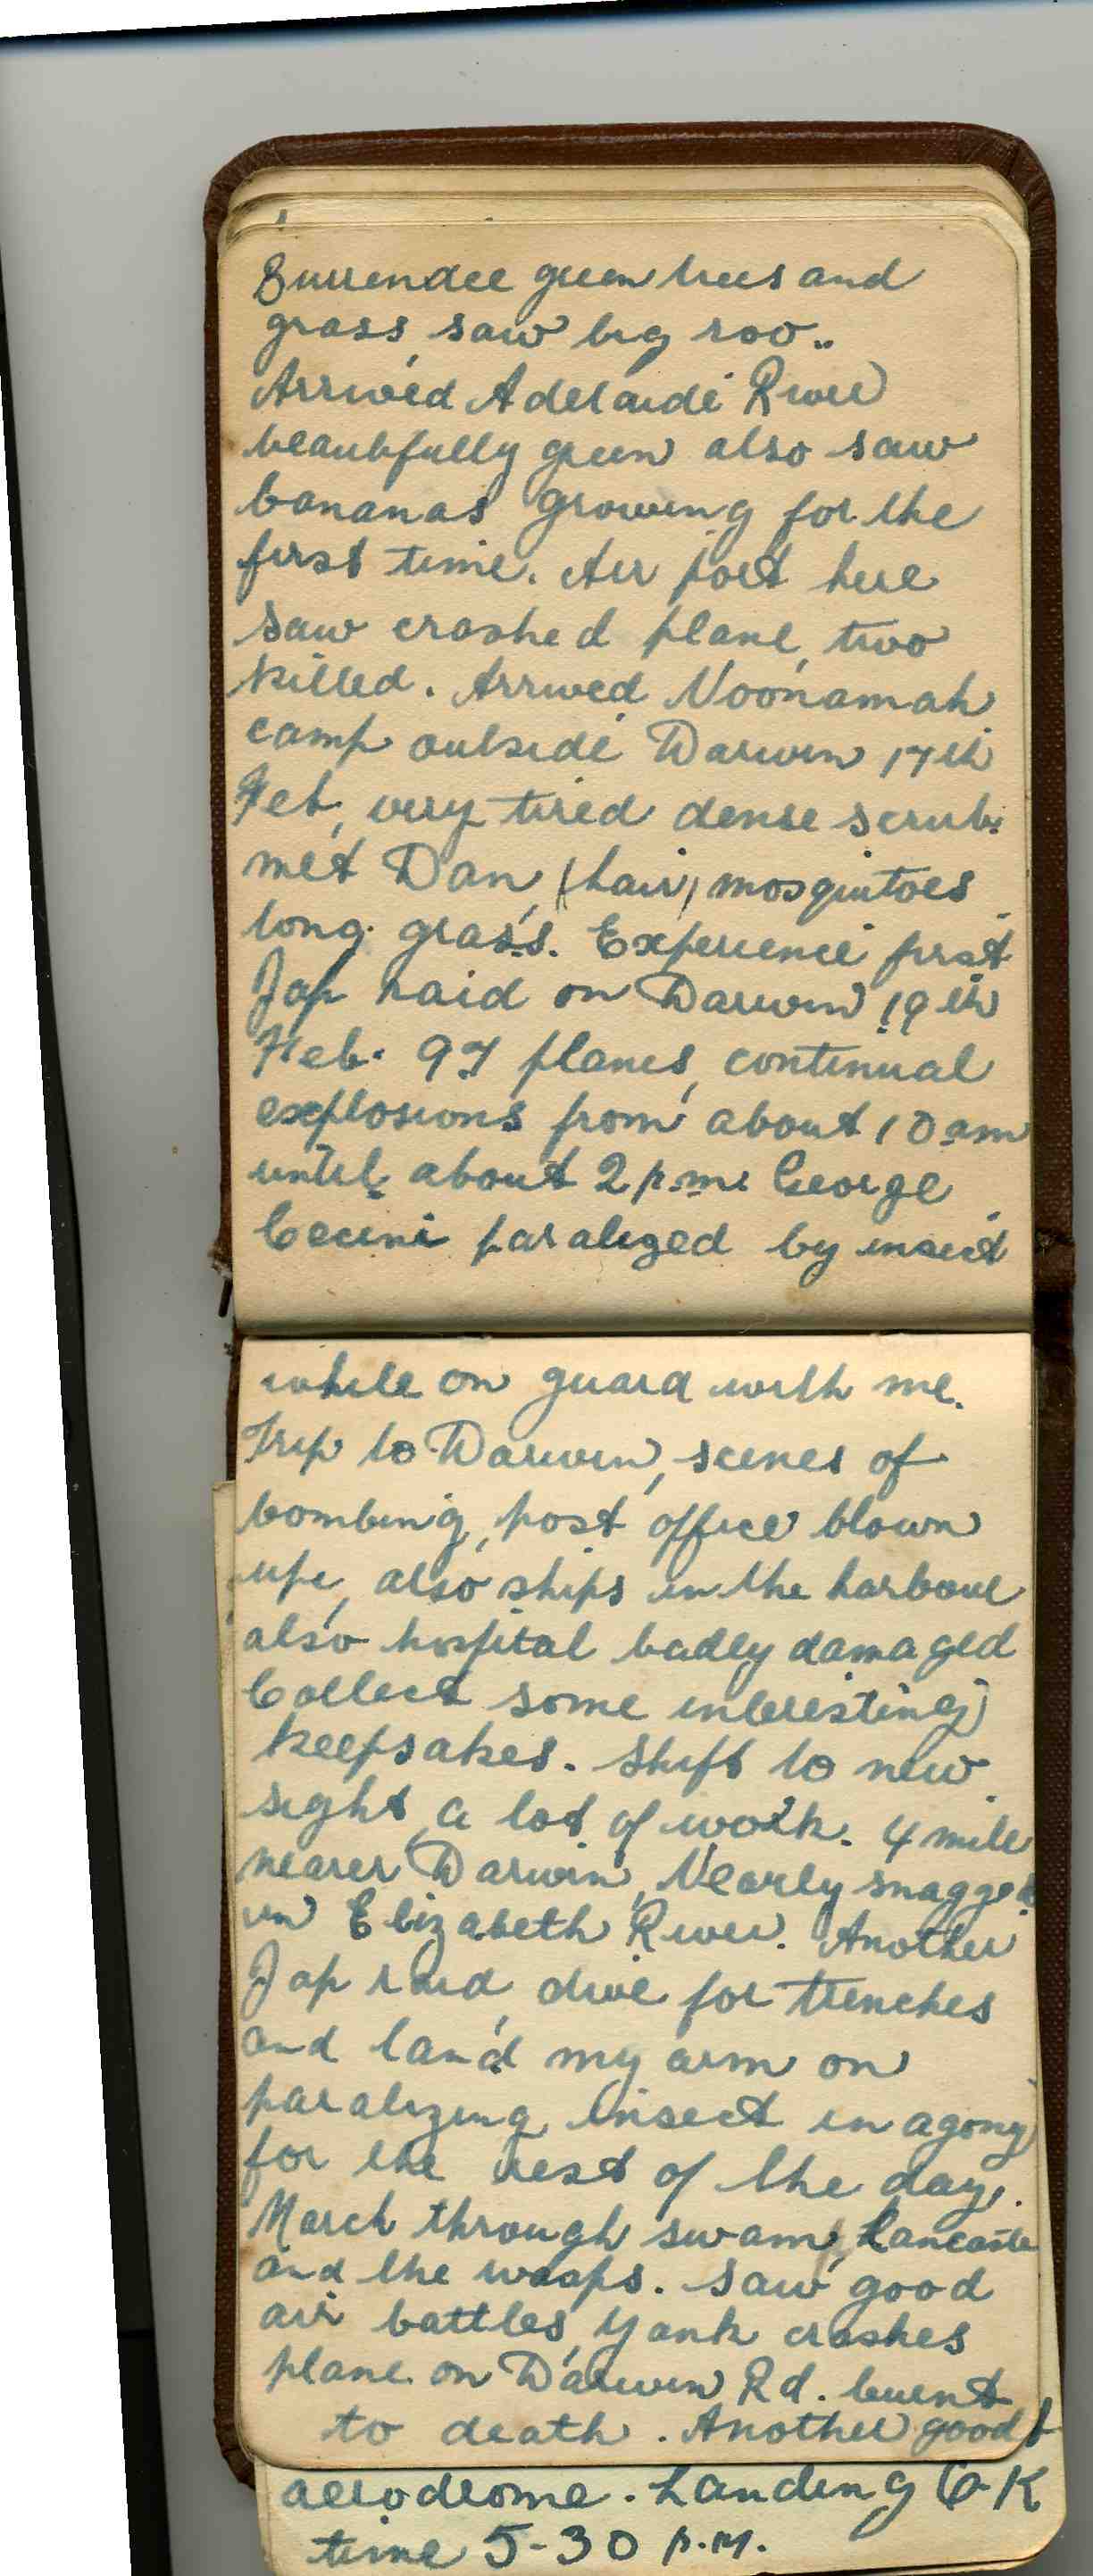 Burrendee green trees and
grass, saw big roo..
Arrived Adelaide River
beautifully green also saw
bananas growing for the
first time. Air port here
saw crashed plane, two
killed. Arrived Noonamah
camp outside Darwin 17th
Feb, very tired dense scrub.
met Dan, (hair) mosquitoes
long grass. Experience first
Jap raid on Darwin 19th
Feb. 97 planes, continual
explosions from about 10 am
until about 2 p.m. George
Cecini paralized by insect
while on guard with me.
Trip to Darwin, scenes of
bombing, post office blown
up, also ships in the harbour
also hospital badly damaged
Collect some interesting
keepsakes. Shift to new
sight, a lot of work. 4 mile
nearer Darwin, Nearly snagged
in Elizabeth River. Another
Jap raid, dive for trenches
and land my arm on
paralizing insect in agony
for the rest of the day.
March through swamp, Lancaster
and the wasps. Saw good
air battles, Yank crashes
plane on Darwin Rd. burnt
to death. Another good
aerodrome. Landing O-K
time 5-30 p.m.